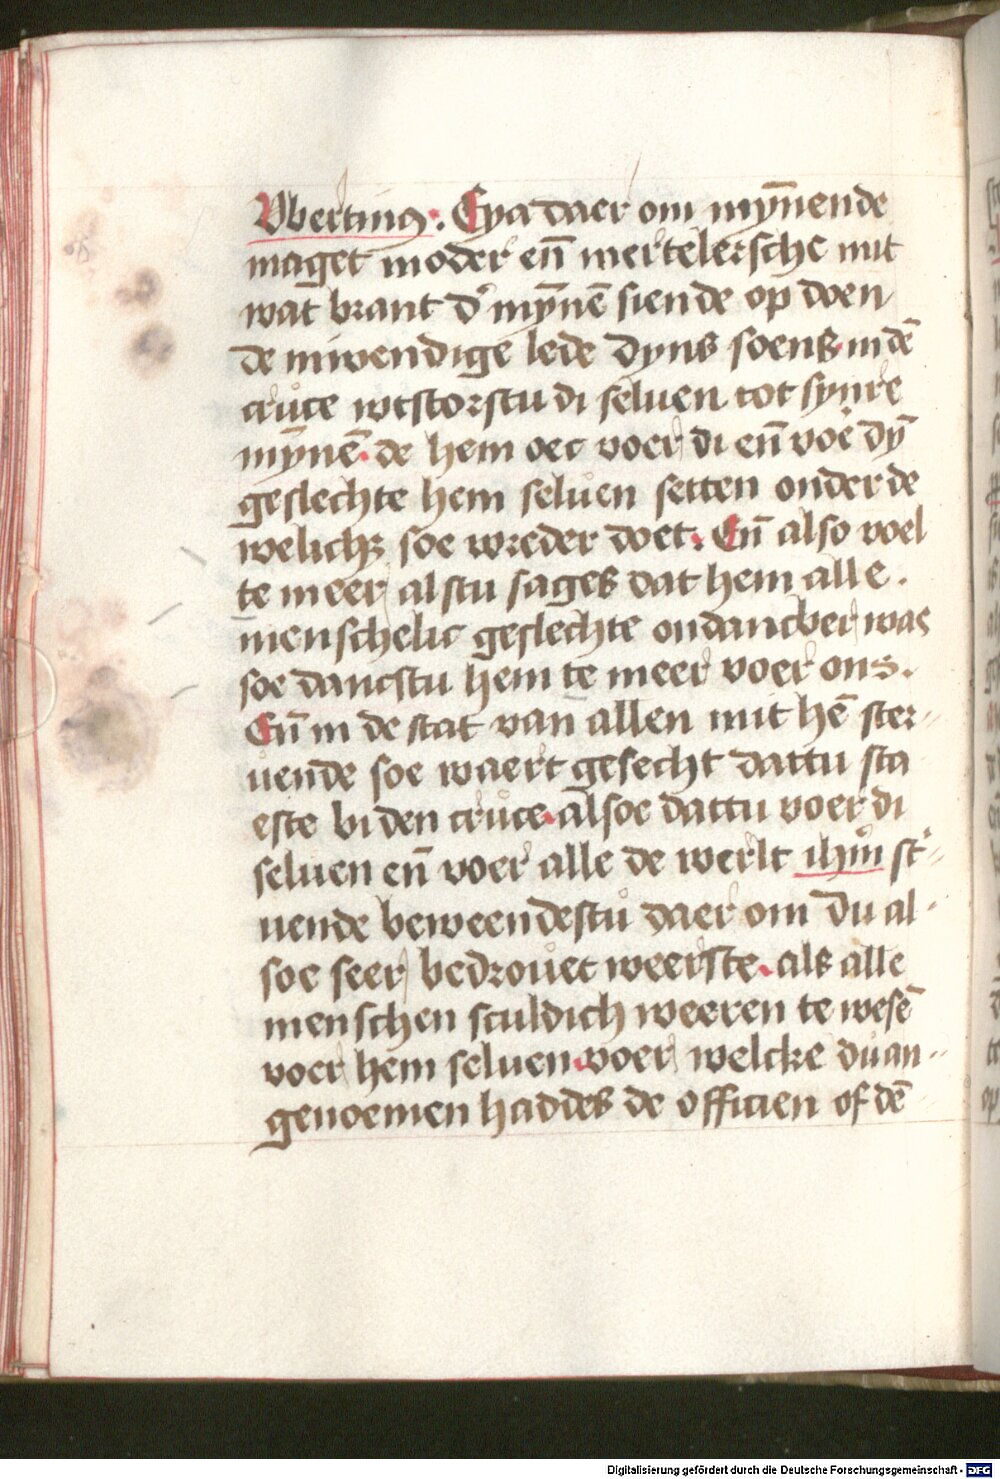 Vbertinus. Eya daer om mȳnende
maget moder en̄ mertelersche mit
wat brant d' mȳnē siende op doen
de inwendige lede dyns soens in dē
cruce wtstorstu di seluen tot synre
mȳnē. de hem oec voer di en̄ voer dȳ
geslechte hem seluen setten onder de
welicḥ soe wreder doet. En̄ also voel
te meer alstu sages dat hem alle.
menschelic geslechte ondancber was
soe dancstu hem te meer voer ons.
En̄ in de stat van allen mit hē ster-
uende soe waert gesecht dattu sta
este bi den cruce. alsoe dattu voer di
seluen en̄ voer alle de werlt ihm̄ st'-
uende beweendestu daer om du al-
soe seer bedrouet weerste. als alle
menschen sculdich weeren te wesē
voer hem seluen. voer welcke du an-
genoemen haddes de officien of dē
Digitalisierung gefördert durch die Deutsche Forschungsgemeinschaft - DFG